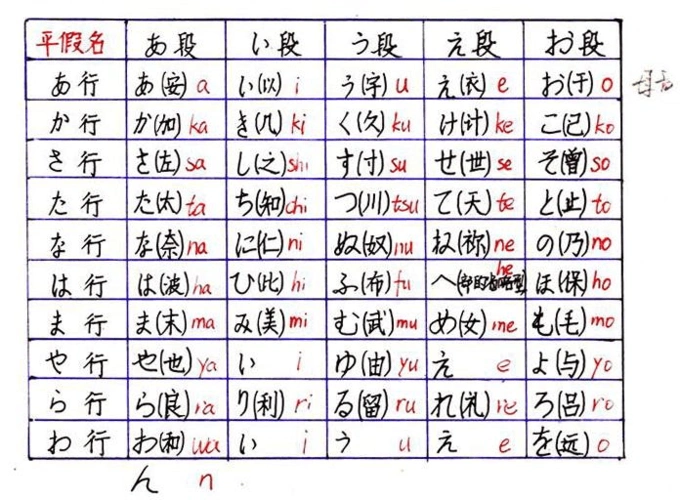 平假名 あ段 い段 う段 え段 お段
あ行 あ(安)a い(以)i う(宇)u え(衣)e お(于)o
か行 か(加)ka き(几)ki く(久)ku け(计)ke こ(己)ko
さ行 さ(左)sa し(之)shi す(寸)su せ(世)se そ(曽)so
た行 た(太)ta ち(知)chi つ(川)tsu て(天)te と(止)to
な行 な(奈)na に(仁)ni ぬ(奴)nu ね(祢)ne の(乃)no
は行 は(波)ha ひ(比)hi ふ(布)fu へ he ほ(保)ho
ま行 ま(末)ma み(美)mi む(武)mu め(女)me も(毛)mo
や行 や(也)ya い i ゆ(由)yu え e よ(与)yo
ら行 ら(良)ra り(利)ri る(留)ru れ(礼)re ろ(呂)ro
わ行 わ(和)wa い i う u え e を(远)o
ん n